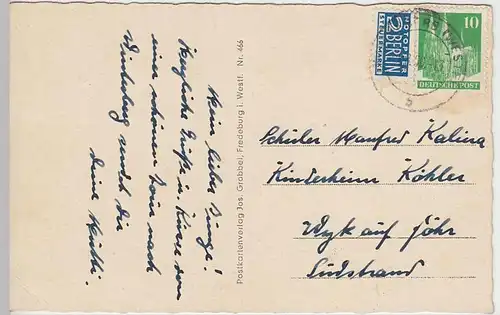 Mein lieber Junge!
Herzliche Grüße u. Küsse von
einer schönen Tour nach
Winterberg sendt Dir
Deine Mutti.
Postkartenverlag Jos. Grobbel, Fredeburg i. Westf. Nr. 466
NOTOPFER
2 BERLIN
STEUERMARKE
10
DEUTSCHE POST
b
Schüler Manfred Kalina
Kinderheim Köhler
Wyk auf Föhr
Südstrand